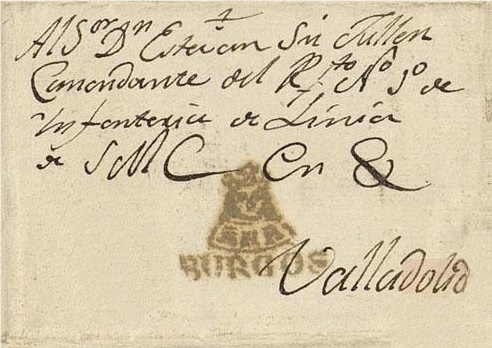 Al Sor Dn Estevan Sn Jullen
Comandante del Rto No 1o de
Infanteria de Linia
de S M C En &
BURGOS
Valladolid